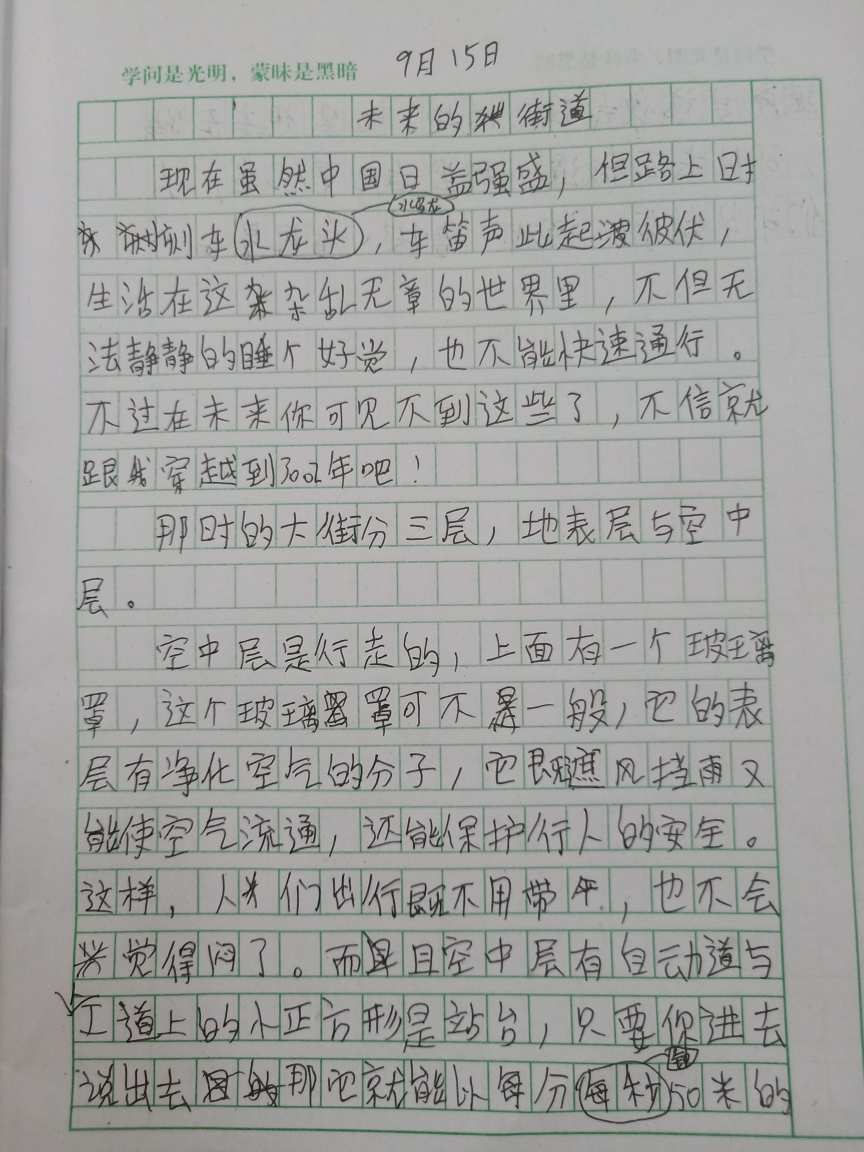 学问是光明，蒙昧是黑暗 9月15日
未来的街道
现在虽然中国日益强盛，但路上时
刻车水龙头，车笛声此起波彼伏，
生活在这杂乱无章的世界里，不但无
法静静的睡个好觉，也不能快速通行。
不过在未来你可见不到这些了，不信就
跟我穿越到3002年吧！
那时的大街分三层，地表层与空中
层。
空中层是行走的，上面有一个玻璃
罩，这个玻璃罩可不是一般，它的表
层有净化空气的分子，它既遮风挡雨又
能使空气流通，还能保护行人的安全。
这样，人们出行既不用带伞，也不会
觉得闷了。而且空中层有自动道与
工道上的小正方形是站台，只要你进去
说出去那它就能以每分每秒50米的